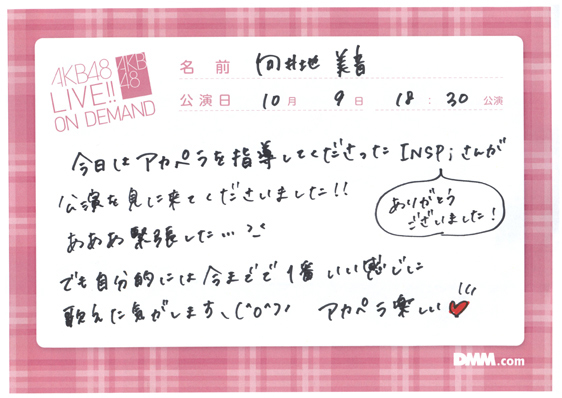 AKB48
LIVE!!
ON DEMAND
AKB
48
名前 向井地 美音
公演日 10月 9日 18:30 公演
今日はアカペラを指導してくださったINSPiさんが
公演を見に来てくださいました!!
ありがとう
ございました!
あああ緊張した…
でも自分的には今までで1番いい感じに
歌えた気がします、(^o^)ノ アカペラ楽しい
DMM.com